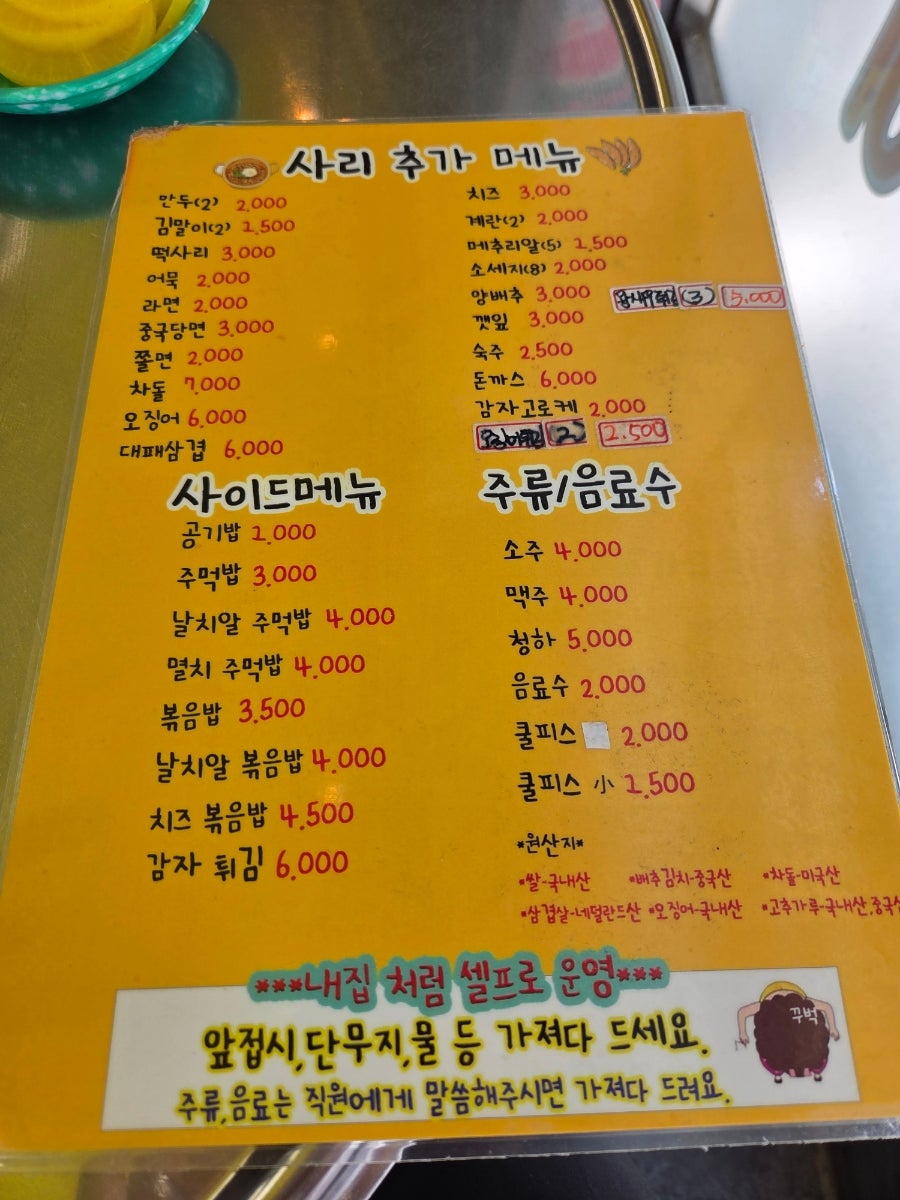 사리 추가 메뉴
만두(2) 2,000
김말이(2) 1,500
떡사리 3,000
어묵 2,000
라면 2,000
중국당면 3,000
쫄면 2,000
차돌 7,000
오징어 6,000
대패삼겹 6,000
치즈 3,000
계란(2) 2,000
메추리알(5) 1,500
소세지(8) 2,000
양배추 3,000
(3) 5,000
깻잎 3,000
숙주 2,500
돈까스 6,000
감자고로케 2,000
(2) 2.500
사이드메뉴
공기밥 1,000
주먹밥 3,000
날치알 주먹밥 4,000
멸치 주먹밥 4,000
볶음밥 3,500
날치알 볶음밥 4,000
치즈 볶음밥 4,500
감자 튀김 6,000
주류/음료수
소주 4,000
맥주 4,000
청하 5,000
음료수 2,000
쿨피스 2,000
쿨피스 小 1,500
*원산지*
*쌀-국내산 *배추김치-중국산 *차돌-미국산
*삼겹살-네덜란드산 *오징어-국내산 *고추가루-국내산,중국산
***내집 처럼 셀프로 운영***
앞접시,단무지,물 등 가져다 드세요.
주류,음료는 직원에게 말씀해주시면 가져다 드려요.
꾸벅